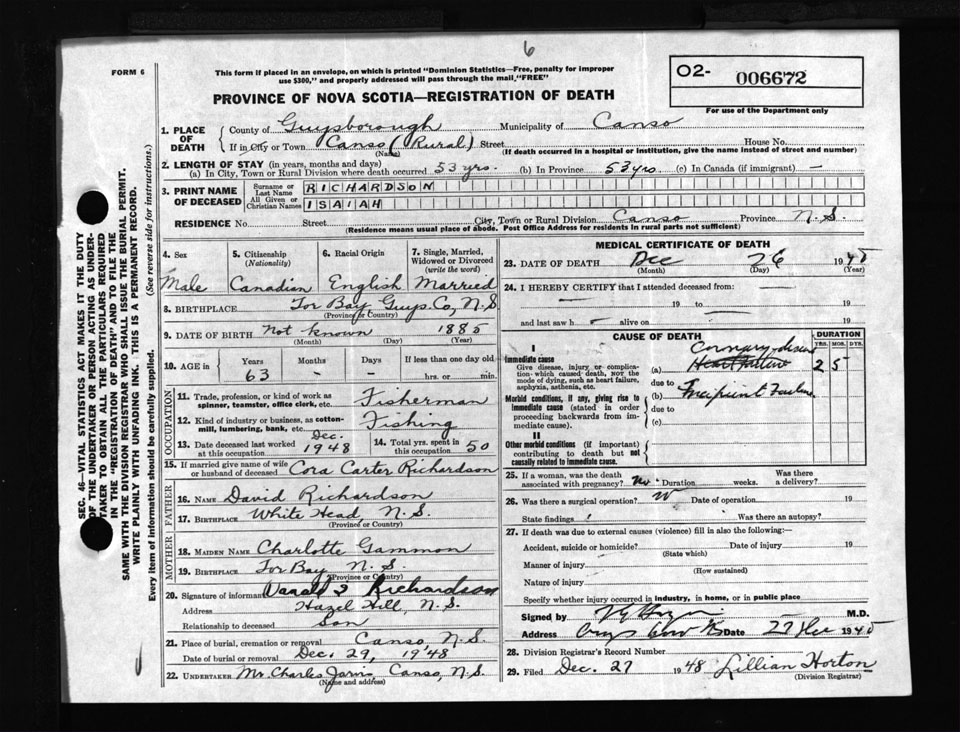 6
FORM 6
This form if placed in an envelope, on which is printed "Dominion Statistics—Free, penalty for improper
use $300," and properly addressed will pass through the mail, "FREE"
O2- 006672
For use of the Department only
PROVINCE OF NOVA SCOTIA—REGISTRATION OF DEATH
SEC. 46—VITAL STATISTICS ACT MAKES IT THE DUTY
OF THE UNDERTAKER OR PERSON ACTING AS UNDER-
TAKER TO OBTAIN ALL THE PARTICULARS REQUIRED
IN THE "REGISTRATION OF DEATH" AND TO FILE THE
SAME WITH THE DIVISION REGISTRAR WHO SHALL ISSUE THE BURIAL PERMIT.
WRITE PLAINLY WITH UNFADING INK. THIS IS A PERMANENT RECORD.
Every item of information should be carefully supplied. (See reverse side for instructions.)
1. PLACE OF DEATH
County of Guysborough Municipality of Canso
If in City or Town Canso (Rural) Street House No.
(Name) (If death occurred in a hospital or institution, give the name instead of street and number)
2. LENGTH OF STAY (in years, months and days)
(a) In City, Town or Rural Division where death occurred 53 yrs. (b) In Province 53 yrs. (c) In Canada (if immigrant) —
3. PRINT NAME OF DECEASED
Surname or Last Name RICHARDSON
All Given or Christian Names ISAIAH
RESIDENCE No. Street City, Town or Rural Division Canso Province N.S.
(Residence means usual place of abode. Post Office Address for residents in rural parts not sufficient)
4. Sex 5. Citizenship (Nationality) 6. Racial Origin 7. Single, Married, Widowed or Divorced (write the word)
Male Canadian English Married
8. BIRTHPLACE Tor Bay Guys. Co, N.S
(Province or Country)
9. DATE OF BIRTH Not known 1885
(Month) (Day) (Year)
10. AGE in Years Months Days If less than one day old
63 – – hrs. or min.
OCCUPATION
11. Trade, profession, or kind of work as
spinner, teamster, office clerk, etc. Fisherman
12. Kind of industry or business, as cotton-
mill, lumbering, bank, etc. Fishing
13. Date deceased last worked at this occupation Dec. 1948
14. Total yrs. spent in this occupation 50
15. If married give name of wife or husband of deceased Cora Carter Richardson
FATHER
16. NAME David Richardson
17. BIRTHPLACE White Head, N.S.
(Province or Country)
MOTHER
18. MAIDEN NAME Charlotte Gammon
19. BIRTHPLACE Tor Bay N.S.
(Province or Country)
20. Signature of informant Richardson
Address Hazel Hill, N.S.
Relationship to deceased Son
21. Place of burial, cremation or removal Canso, N.S.
Date of burial or removal Dec. 29, 1948
22. UNDERTAKER Mr. Charles Jarvis, Canso, N.S.
(Name and address)
MEDICAL CERTIFICATE OF DEATH
23. DATE OF DEATH Dec 26 194
(Month) (Day) (Year)
24. I HEREBY CERTIFY that I attended deceased from —
— 19 to — 19
and last saw h – alive on — 19
CAUSE OF DEATH DURATION
YRS. MOS. DYS.
I
Immediate cause
Give disease, injury or complica-
tion which caused death, NOT the
mode of dying, such as heart failure,
asphyxia, asthenia, etc.
(a) Heart Failure 2 5
due to
Morbid conditions, if any, giving rise to
immediate cause (stated in order
proceeding backwards from im-
mediate cause).
(b) Incipient
due to
(c)
II
Other morbid conditions (if important)
contributing to death but not
causally related to immediate cause.
25. If a woman, was the death associated with pregnancy? No Duration weeks. Was there a delivery?
26. Was there a surgical operation? Date of operation 19
State findings Was there an autopsy?
27. If death was due to external causes (violence) fill in also the following:—
Accident, suicide or homicide? Date of injury 19
(State which)
Manner of injury
(How sustained)
Nature of injury
Specify whether injury occurred in industry, in home, or in public place
Signed by M.D.
Address Date 27 Dec 194
28. Division Registrar's Record Number
29. Filed Dec. 27 1948 Lillian Horton
(Division Registrar)